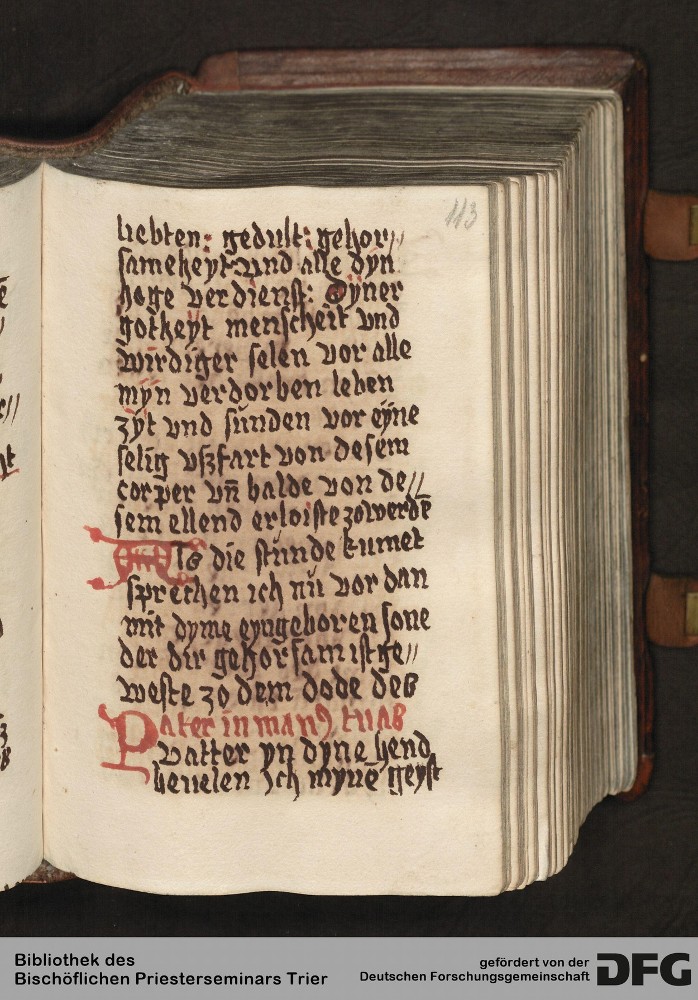 113
liebten: gedult: gehor//
samekeyt: vnd alle dyn
hoge verdienst: Dyner
gotheyt menscheit vnd
wirdiger selen vor alle
myn verdorben leben
zyt vnd sunden vor eyne
selig vszfart von desem
corper vn̄ balde von de//
sem ellend erloiste zo werdē
die stunde kumet
sprechen ich nū vor dan
mit dyme eyngeboren sone
der dir gehorsam ist ge//
weste zo dem dode des
Pater in manꝰ tuas
vatter yn dyne hend
beuelen ich mynē geyst
Bibliothek des
Bischöflichen Priesterseminars Trier
gefördert von der
Deutschen Forschungsgemeinschaft
DFG